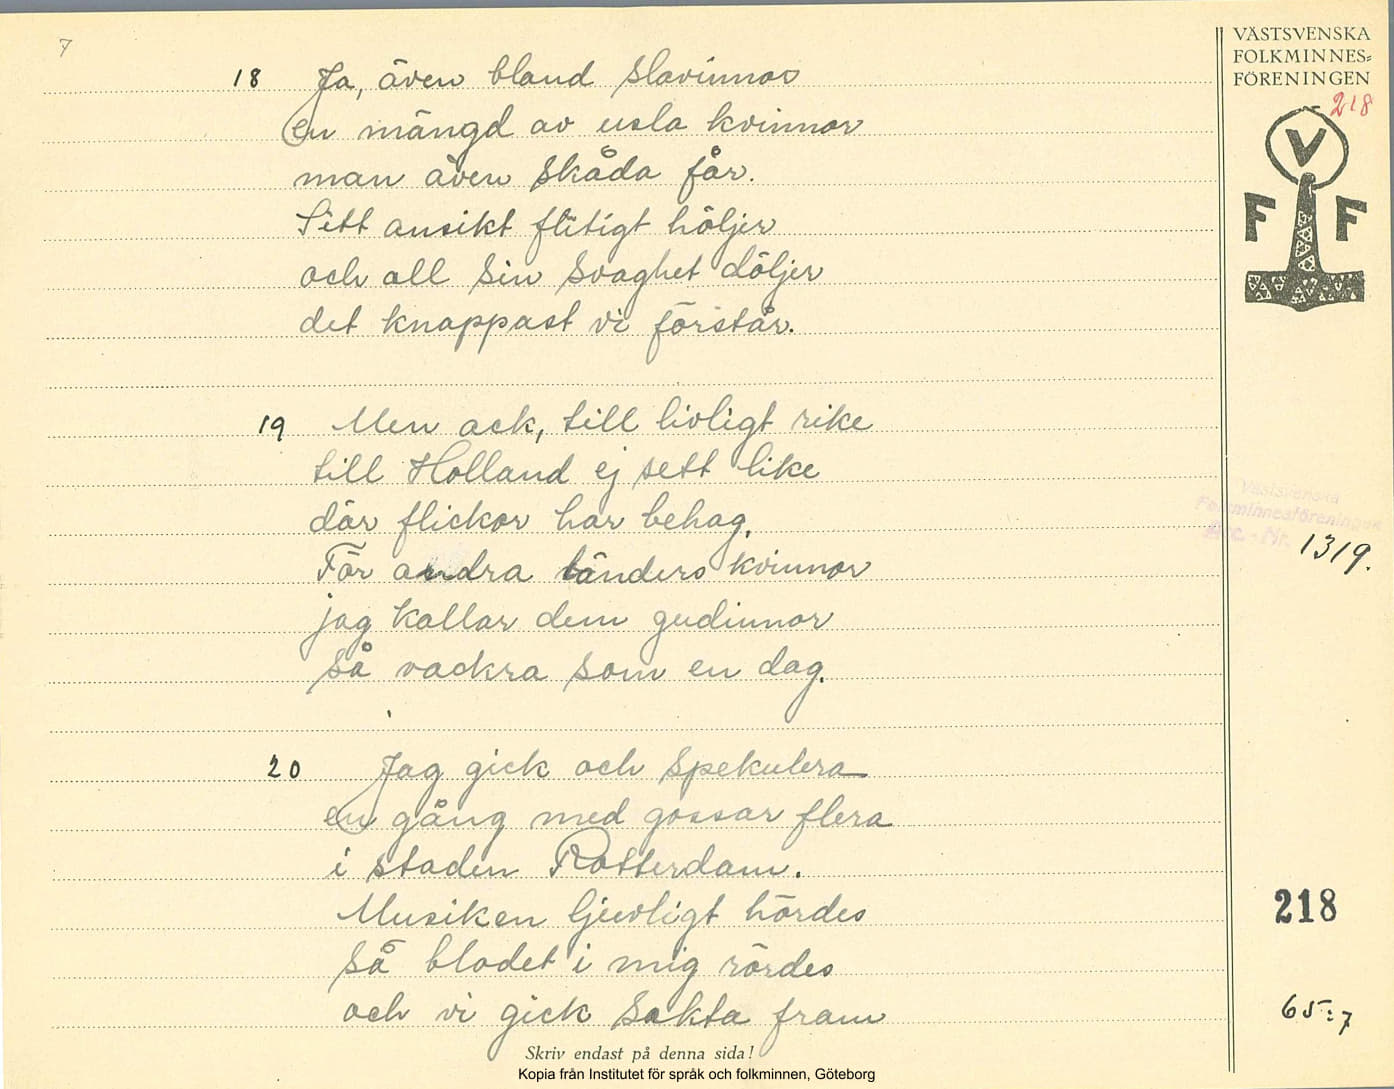 7
18 Ja, även bland slavinnor
en mängd av usla kvinnor
man även skåda får.
Sitt ansikt flitigt höljer
och all sin svaghet döljer
det knappast vi förstår.
19 Men ack, till livligt rike
till Holland ej sett like
där flickor har behag.
För andra länders kvinnor
jag kallar dem gudinnor
så vackra som en dag.
20 Jag gick och spekulera
en gång med gossar flera
i staden Rotterdam.
Musiken ljuvligt hördes
så blodet i mig rördes
och vi gick sakta fram
Skriv endast på denna sida!
Kopia från Institutet för språk och folkminnen, Göteborg
VÄSTSVENSKA
FOLKMINNES=
FÖRENINGEN
218
V
F F
Västsvenska
Folkminnesföreningen
Acc.-Nr. 1319.
218
65:7